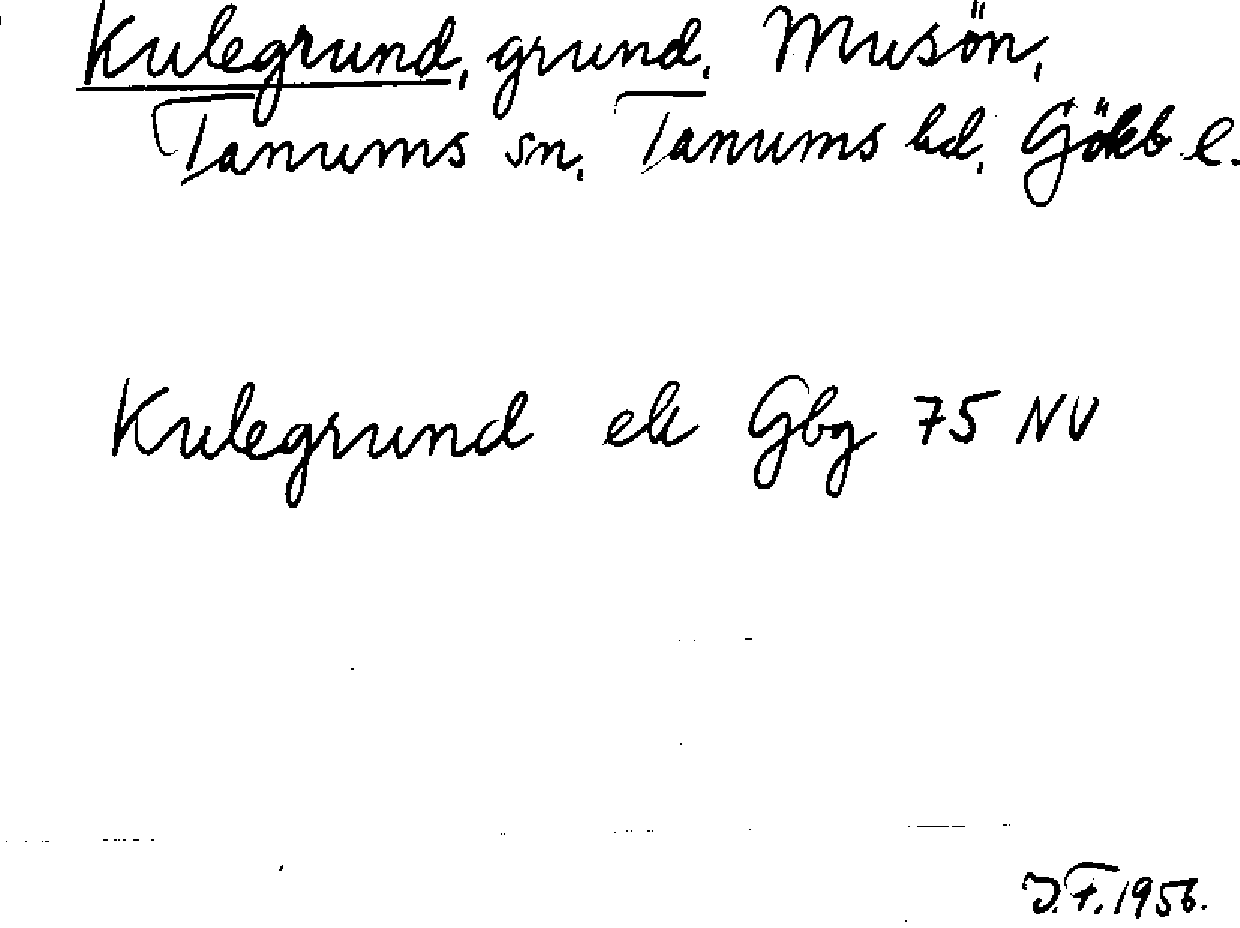 Kulegrund, grund, Musön,
Tanums sn, Tanums hd, Gökb l.
Kulegrund ek Gbg 75 NV
J.F. 1956.